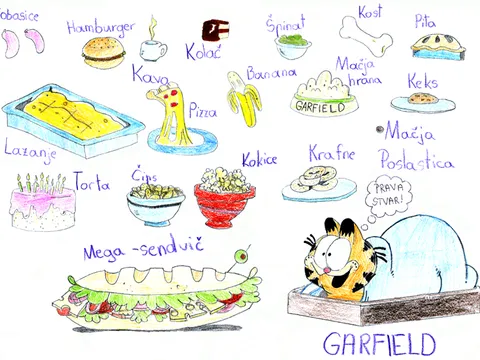 Hamburger
Kolač
Špinat
Kost
Pita
Kava
Banana
Mačja
hrana
GARFIELD
Keks
Pizza
Lazanje
Mačja
Poslastica
Torta
Čips
Kokice
Krafne
PRAVA
STVAR!
Mega-sendvič
GARFIELD